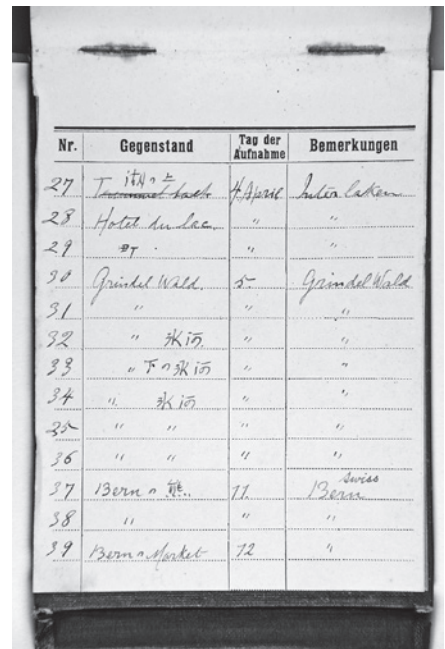 Nr. Gegenstand Tag der Aufnahme Bemerkungen
27 4 April Interlaken
28 Hotel du lac. " "
29 町 . " "
30 Grindel Wald. 5- Grindel Wald
31 " " "
32 " 氷河. " "
33 " 下ノ氷河 " "
34 " 氷河 " "
35 " " " "
36 " " " "
37 Bern ノ 11 Bern Swiss
38 " " "
39 Bern ノ Market 12 "